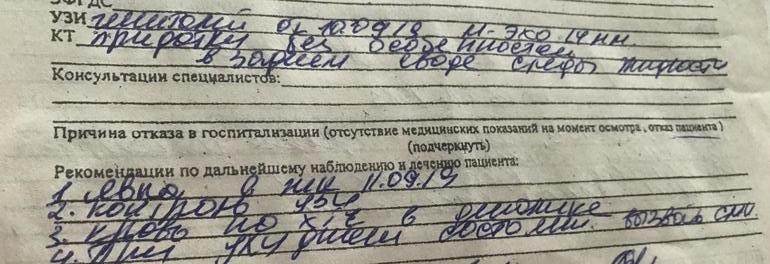 ЭФГДС
УЗИ гениталий от 10.09.19 М-эхо 14 мм.
КТ придатки без особенностей
в заднем своде следы жидкости
Консультации специалистов:
Причина отказа в госпитализации (отсутствие медицинских показаний на момент осмотра, отказ пациента)
(подчеркнуть)
Рекомендации по дальнейшему наблюдению и лечению пациента:
1. Явка в ж/к 11.09.19
2. контроль УЗИ
3. кровь по ХГЧ в динамике
4. При ухудшении состояния вызвать СМП.